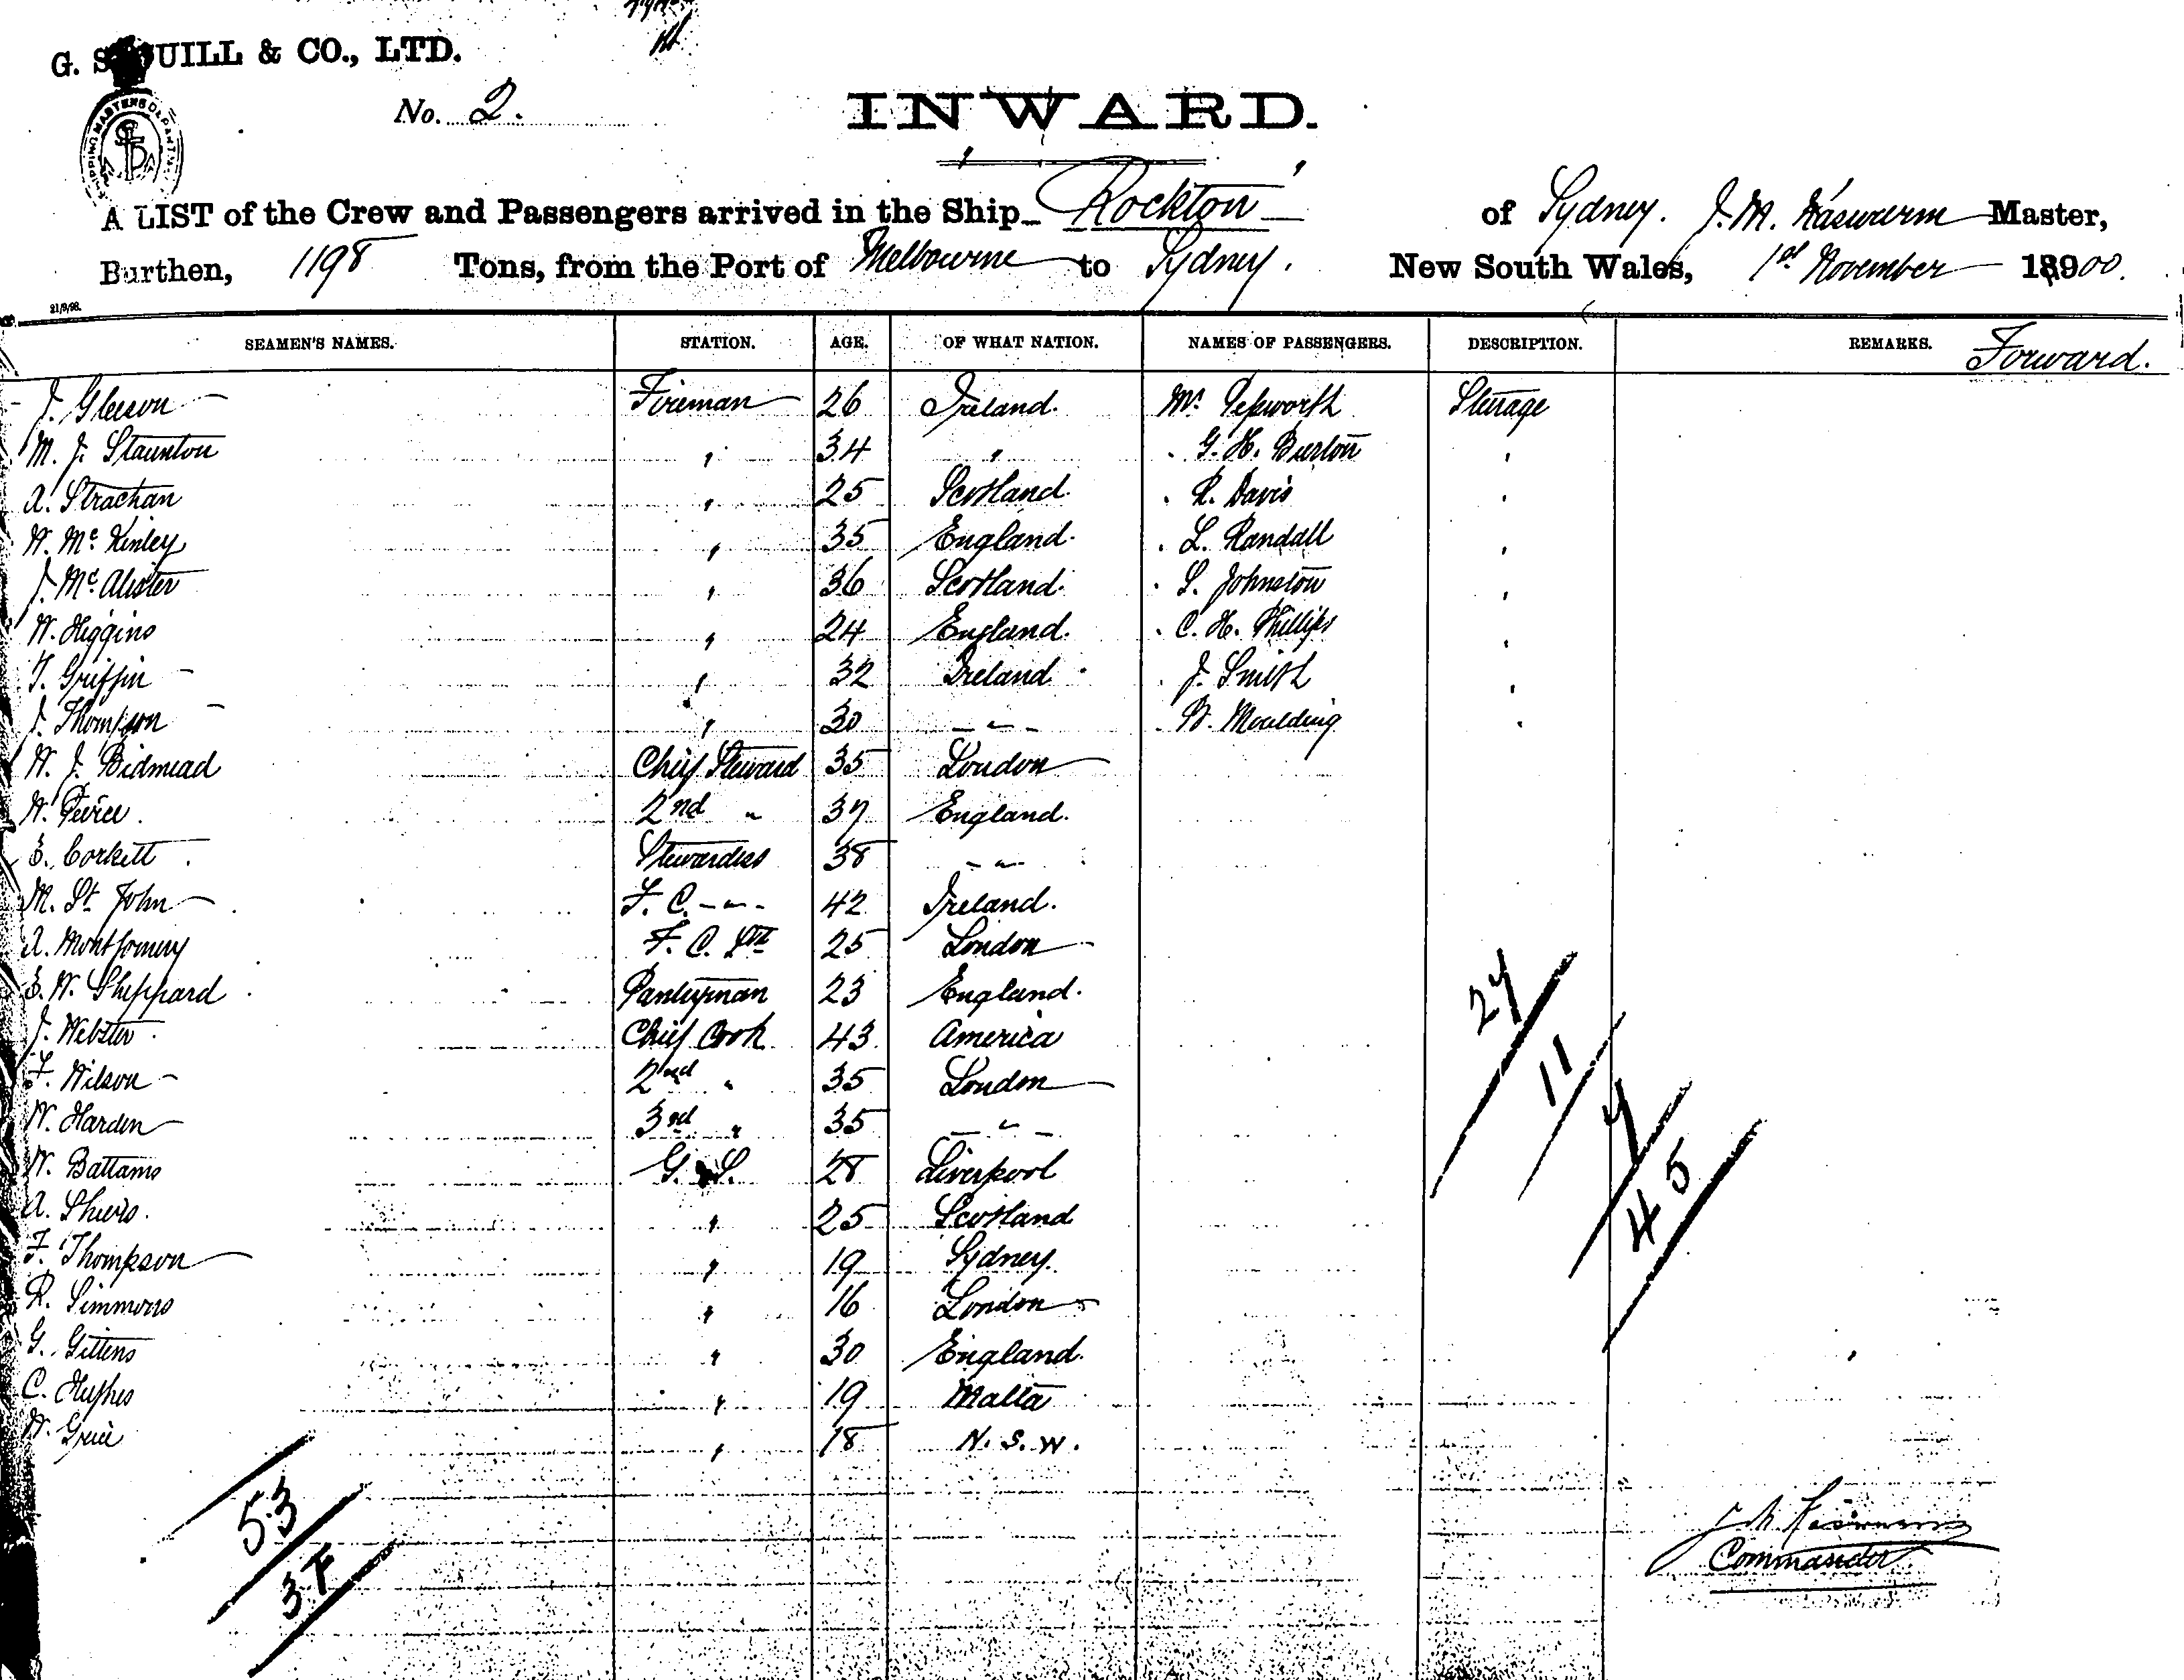 G. S UILL & CO., LTD.
No. 2.
INWARD.
A LIST of the Crew and Passengers arrived in the Ship Rockton of Sydney. J. M. Master,
Burthen, 1198 Tons, from the Port of Melbourne to Sydney. New South Wales, 1st November 1900.
21/9/98.
SEAMEN'S NAMES. STATION. AGE. OF WHAT NATION. NAMES OF PASSENGERS. DESCRIPTION. REMARKS. Forward.
J. Gleeson Fireman 26 Ireland. Mr Pepworth Steerage
M. J. Staunton " 34 " . G. H. Burton "
A. Strachan " 25 Scotland. . R. Davis "
W. Mc Kinley " 35 England. . L. Randall "
J. Mc Alister " 36 Scotland. . S. Johnston "
W. Higgins " 24 England. . C. H. Phillips "
T. Griffin " 32 Ireland . J. Smith "
J. Thompson " 30 - " - . W. Moulding "
W. J. Bidmead Chief Steward 35 London
W. Peirce. 2nd " 37 England.
E. Corkett Stewardess 38 - " -
M. St John F. C. - " - 42 Ireland.
A. Montgomery F. C. Std 25 London
E. W. Sheppard Pantryman 23 England.
J. Webster Chief Cook 43 America
F. Wilson 2nd " 35 London
W. Harden 3rd " 35 - " -
W. Battams G. S. 28 Liverpool
A. Shiers. " 25 Scotland
F. Thompson " 19 Sydney.
R. Simmons " 16 London
G. Gittens " 30 England.
C. Hughes " 19 Malta
W. Grice " 18 N. S. W.
27
11
7
45
53
3 F
J. M.
Commander